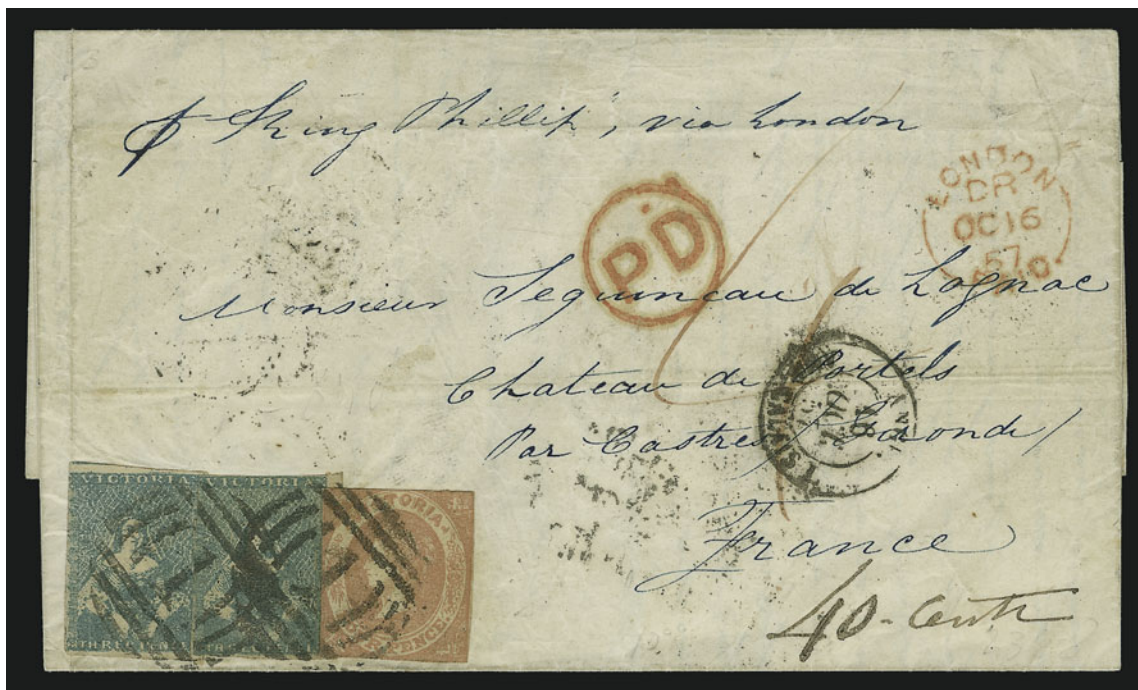 p "King Phillip", via London
PD
LONDON
DR
OC 16
57
PAID
Monsieur Seguineau de Lognac
Chateau de Portets
Par Castres / Gironde /
France
40 - Cents
VICTORIA VICTORIA
THREE PENCE THREE PENCE
VICTORIA